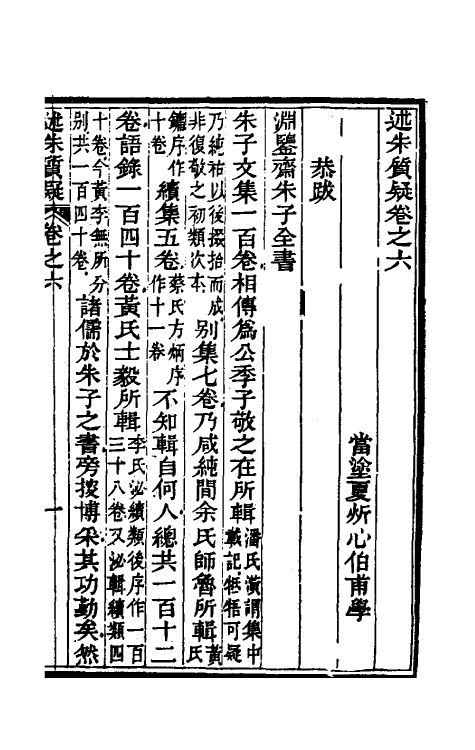 述朱質疑卷之六
當塗夏炘心伯甫學
恭跋
淵鑒齋朱子全書
朱子文集一百卷相傳爲公季子敬之在所輯潘氏潢謂集中載記牴牾可疑
乃純祐以後掇拾而成非復敬之初類次本別集七卷乃咸純間余氏師魯所輯黃氏
鏞序作十卷續集五卷蔡氏方炳序作十一卷不知輯自何人總共一百十二
卷語錄一百四十卷黃氏士毅所輯李氏泌續類後序作一百三十八卷又泌輯續類四
十卷今黃李無所分別共一百四十卷諸儒於朱子之書旁搜博采其功勤矣然
述朱質疑 卷之六 一